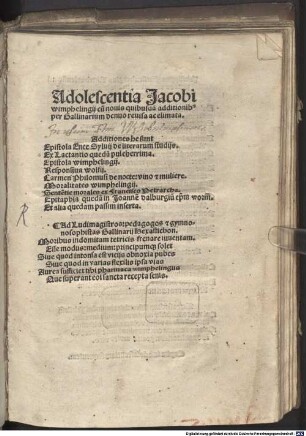 Adolescentia Jacobi
wimphelingii cū nouis quibusdā additionib⁹
per Gallinarium denuo reuisa ac elimata.
Additiones he sunt
Epistola Enee Syluij de literarum studijs.
Ex Lactantio quedā pulcherrima.
Epistola wimphelingii.
Responsiua wolfii.
Carmen Philomusi de nocte: vino ⁊ muliere.
Moralitates wimphelingii.
Sententie morales ex Francisco Petrarcha.
Epitaphia quedā in Joannē dalburgiū epm̄ worm̄.
Et alia quedam passim inserta.
Ad Ludimagistros: pedagogos ⁊ gymno-
nosophistas Gallinarij Hexastichon.
Moribus indomitam tetricis frenare iuuentam.
Esse modus: medium: principiumq; solet
Siue quod intonsa est vicijs obnoxia pubes
Siue quod in varias flexilis ipsa vias
Aurea sufficiet tibi pharmaca wimphelingius
Que superant coi sancta recepta senis.